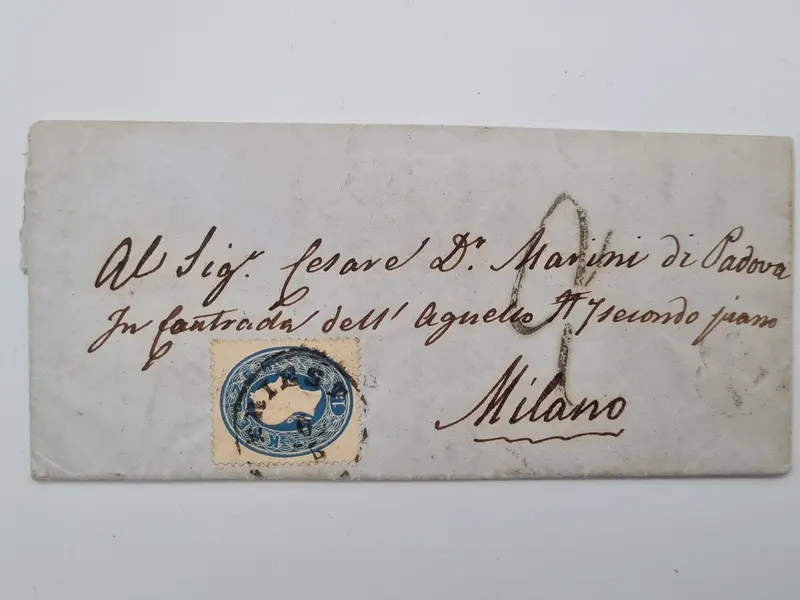 Al Sigr. Cesare Dr. Marini di Padova
In Contrada dell' Agnello N 7 secondo piano
Milano
2
TRIEST
6
5
15